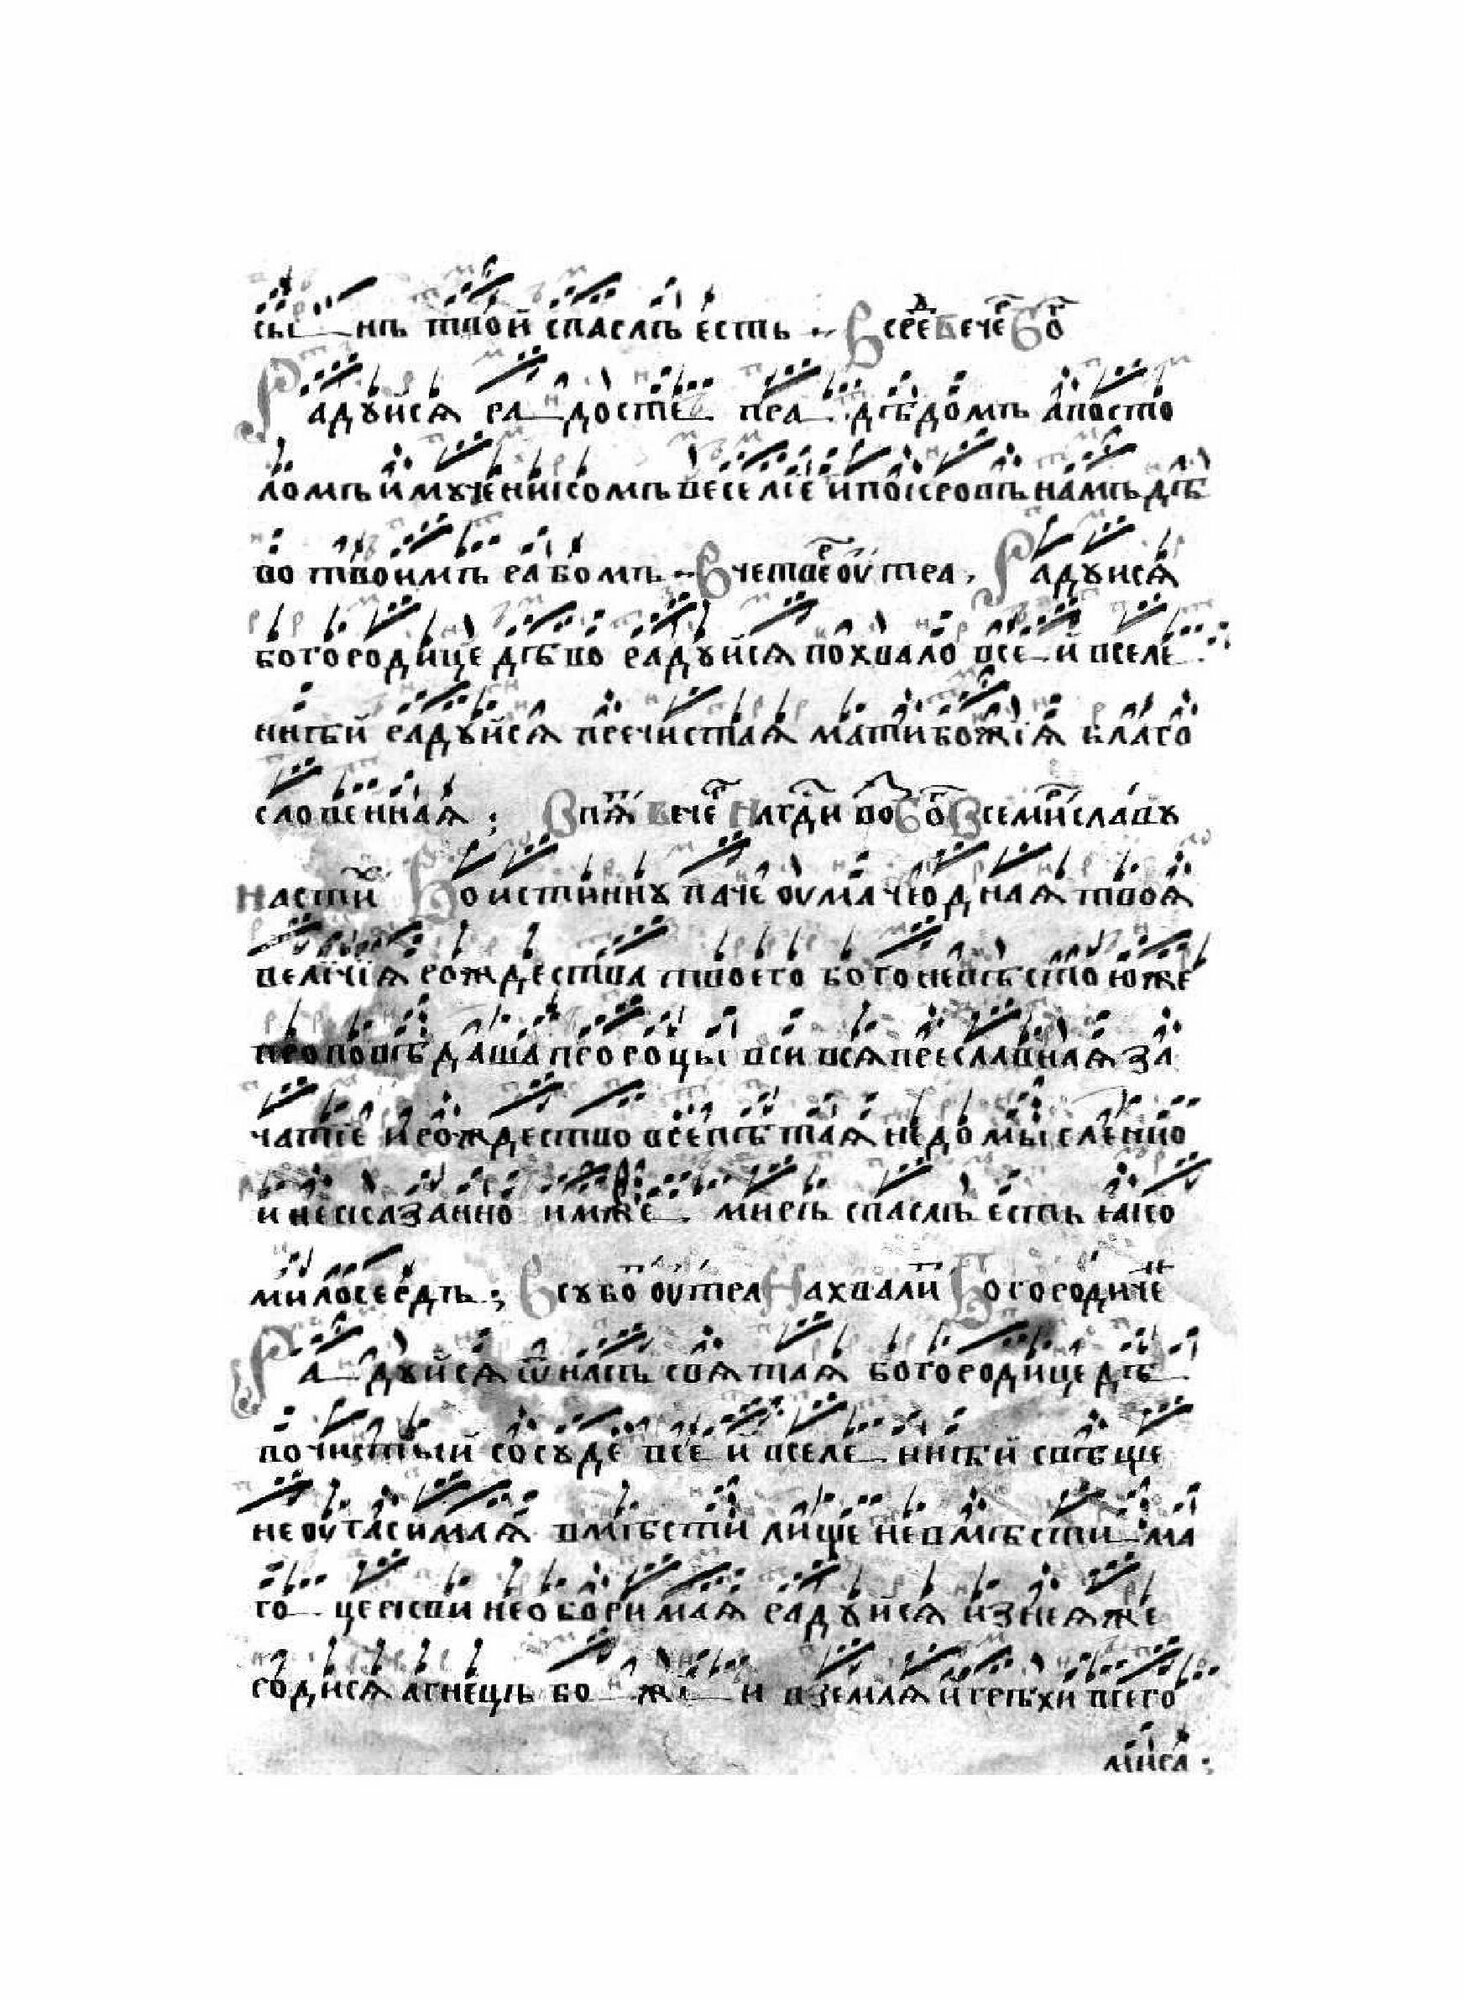 сы нъ твой спаслъ есть Всре вече бо
Радуйся ра досте пра дѣдомъ апосто
ломъ имученикомъ веселіе ипокровъ намъ дѣ
во твоимъ рабомъ Вчетве оутра, Радуися
богородице дѣво радуйся похвало все й вселе
ннѣй радуйся пречистая мати божїя благо
словенная ; Впя вече
насти Воистинну паче оума чюдная твоя
величїя рождества твоего богоневѣсто юже
проповѣдаша пророцы вси вся преславная за
чатіе ирождество всепѣтая недомысленно
инесказанно имже миръ спаслъ есть яко
милосердъ ; Всубо оутра Нахвали Богородиче
Ра дуйся ѿнасъ святая богородице дѣ
во чистый сосуде все й вселе ннѣй свѣще
неоугасимая вмѣсти лище невмѣсти ма
го церкви необоримая радуйся изнеяже
родися агнецъ бо жї и вземляй грѣхи всего
мира ;